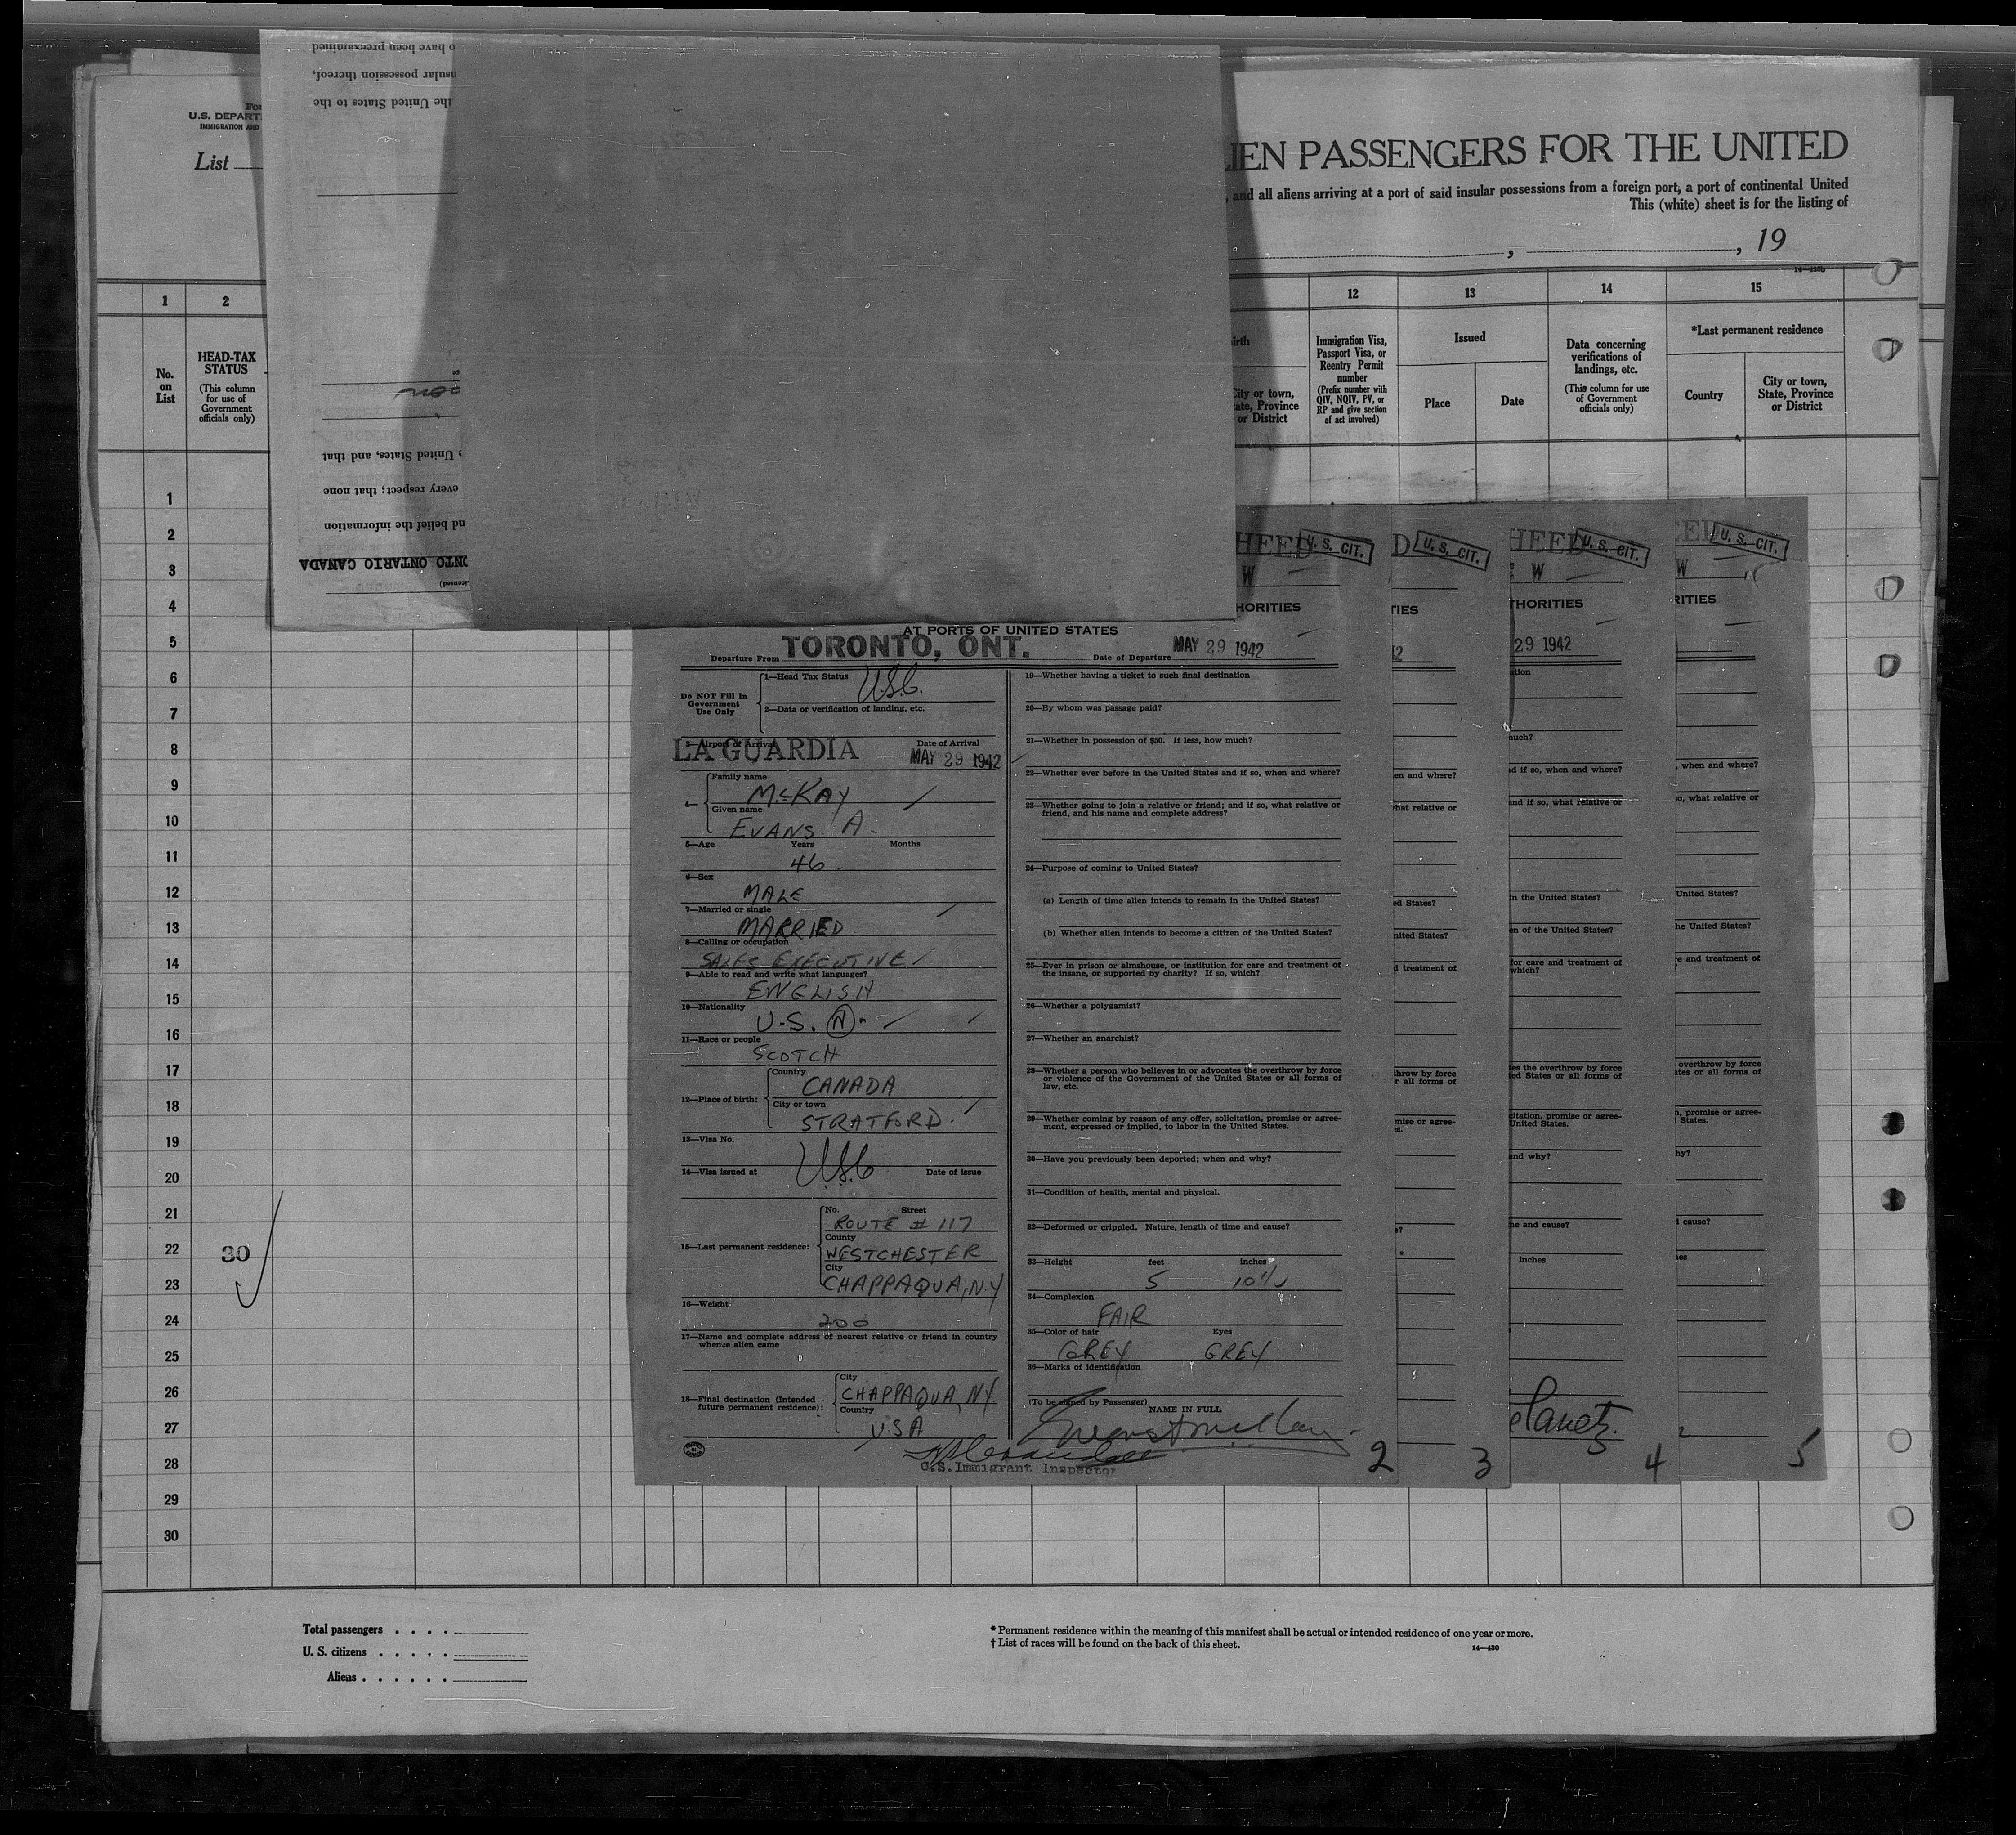 o have been preexamined
sular possession thereof,
the United States to the
United States, and that
every respect; that none
nd belief the information
ONTO ONTARIO CANADA
U.S. DEPART
IMMIGRATION AND
List
IEN PASSENGERS FOR THE UNITED
, and all aliens arriving at a port of said insular possessions from a foreign port, a port of continental United
This (white) sheet is for the listing of
, , 19
1 2 12 13 14 15
No. on List
HEAD-TAX STATUS
(This column for use of Government officials only)
irth
City or town, State, Province or District
Immigration Visa, Passport Visa, or Reentry Permit number
(Prefix number with QIV, NQIV, PV, or RP and give section of act involved)
Issued
Place
Date
Data concerning verifications of landings, etc.
(This column for use of Government officials only)
*Last permanent residence
Country
City or town, State, Province or District
1
2
3
4
5
6
7
8
9
10
11
12
13
14
15
16
17
18
19
20
21
22
23
24
25
26
27
28
29
30
30
HEED U. S. CIT.
W
HORITIES
AT PORTS OF UNITED STATES
Departure From TORONTO, ONT. Date of Departure MAY 29 1942
Do NOT Fill In Government Use Only
1—Head Tax Status U.S.C.
2—Data or verification of landing, etc.
3—Airport of Arrival LA GUARDIA
Date of Arrival MAY 29 1942
4— Family name McKAY
Given name EVANS A.
5—Age Years Months
46
6—Sex
MALE
7—Married or single
MARRIED
8—Calling or occupation
SALES EXECUTIVE
9—Able to read and write what languages?
ENGLISH
10—Nationality
U.S. N
11—Race or people
SCOTCH
12—Place of birth: Country CANADA
City or town STRATFORD.
13—Visa No.
USC
14—Visa issued at Date of issue
15—Last permanent residence: No. Street
ROUTE # 117
County
WESTCHESTER
City
CHAPPAQUA, N.Y
16—Weight
200
17—Name and complete address of nearest relative or friend in country whence alien came
18—Final destination (Intended future permanent residence): City
CHAPPAQUA, NY
Country
USA
U.S. Immigrant Inspector
19—Whether having a ticket to such final destination
20—By whom was passage paid?
21—Whether in possession of $50. If less, how much?
22—Whether ever before in the United States and if so, when and where?
23—Whether going to join a relative or friend; and if so, what relative or
friend, and his name and complete address?
24—Purpose of coming to United States?
(a) Length of time alien intends to remain in the United States?
(b) Whether alien intends to become a citizen of the United States?
25—Ever in prison or almshouse, or institution for care and treatment of
the insane, or supported by charity? If so, which?
26—Whether a polygamist?
27—Whether an anarchist?
28—Whether a person who believes in or advocates the overthrow by force
or violence of the Government of the United States or all forms of
law, etc.
29—Whether coming by reason of any offer, solicitation, promise or agree-
ment, expressed or implied, to labor in the United States.
30—Have you previously been deported; when and why?
31—Condition of health, mental and physical.
32—Deformed or crippled. Nature, length of time and cause?
33—Height feet inches
5 10½
34—Complexion
FAIR
35—Color of hair Eyes
GREY GREY
36—Marks of identification
(To be signed by Passenger)
NAME IN FULL
2
D U. S. CIT.
TIES
42
en and where?
hat relative or
ed States?
nited States?
d treatment of
hrow by force
r all forms of
mise or agree-
es.
e?
3
HEED U. S. CIT.
W
THORITIES
29 1942
ation
much?
d if so, when and where?
and if so, what relative or
n the United States?
en of the United States?
for care and treatment of
which?
es the overthrow by force
ted States or all forms of
citation, promise or agree-
United States.
and why?
me and cause?
inches
4
EED U. S. CIT.
W
RITIES
, when and where?
so, what relative or
United States?
he United States?
re and treatment of
?
overthrow by force
ates or all forms of
n, promise or agree-
States.
hy?
cause?
hes
5
Total passengers . . . .
U. S. citizens . . . . .
Aliens . . . . . .
* Permanent residence within the meaning of this manifest shall be actual or intended residence of one year or more.
† List of races will be found on the back of this sheet.
14—430